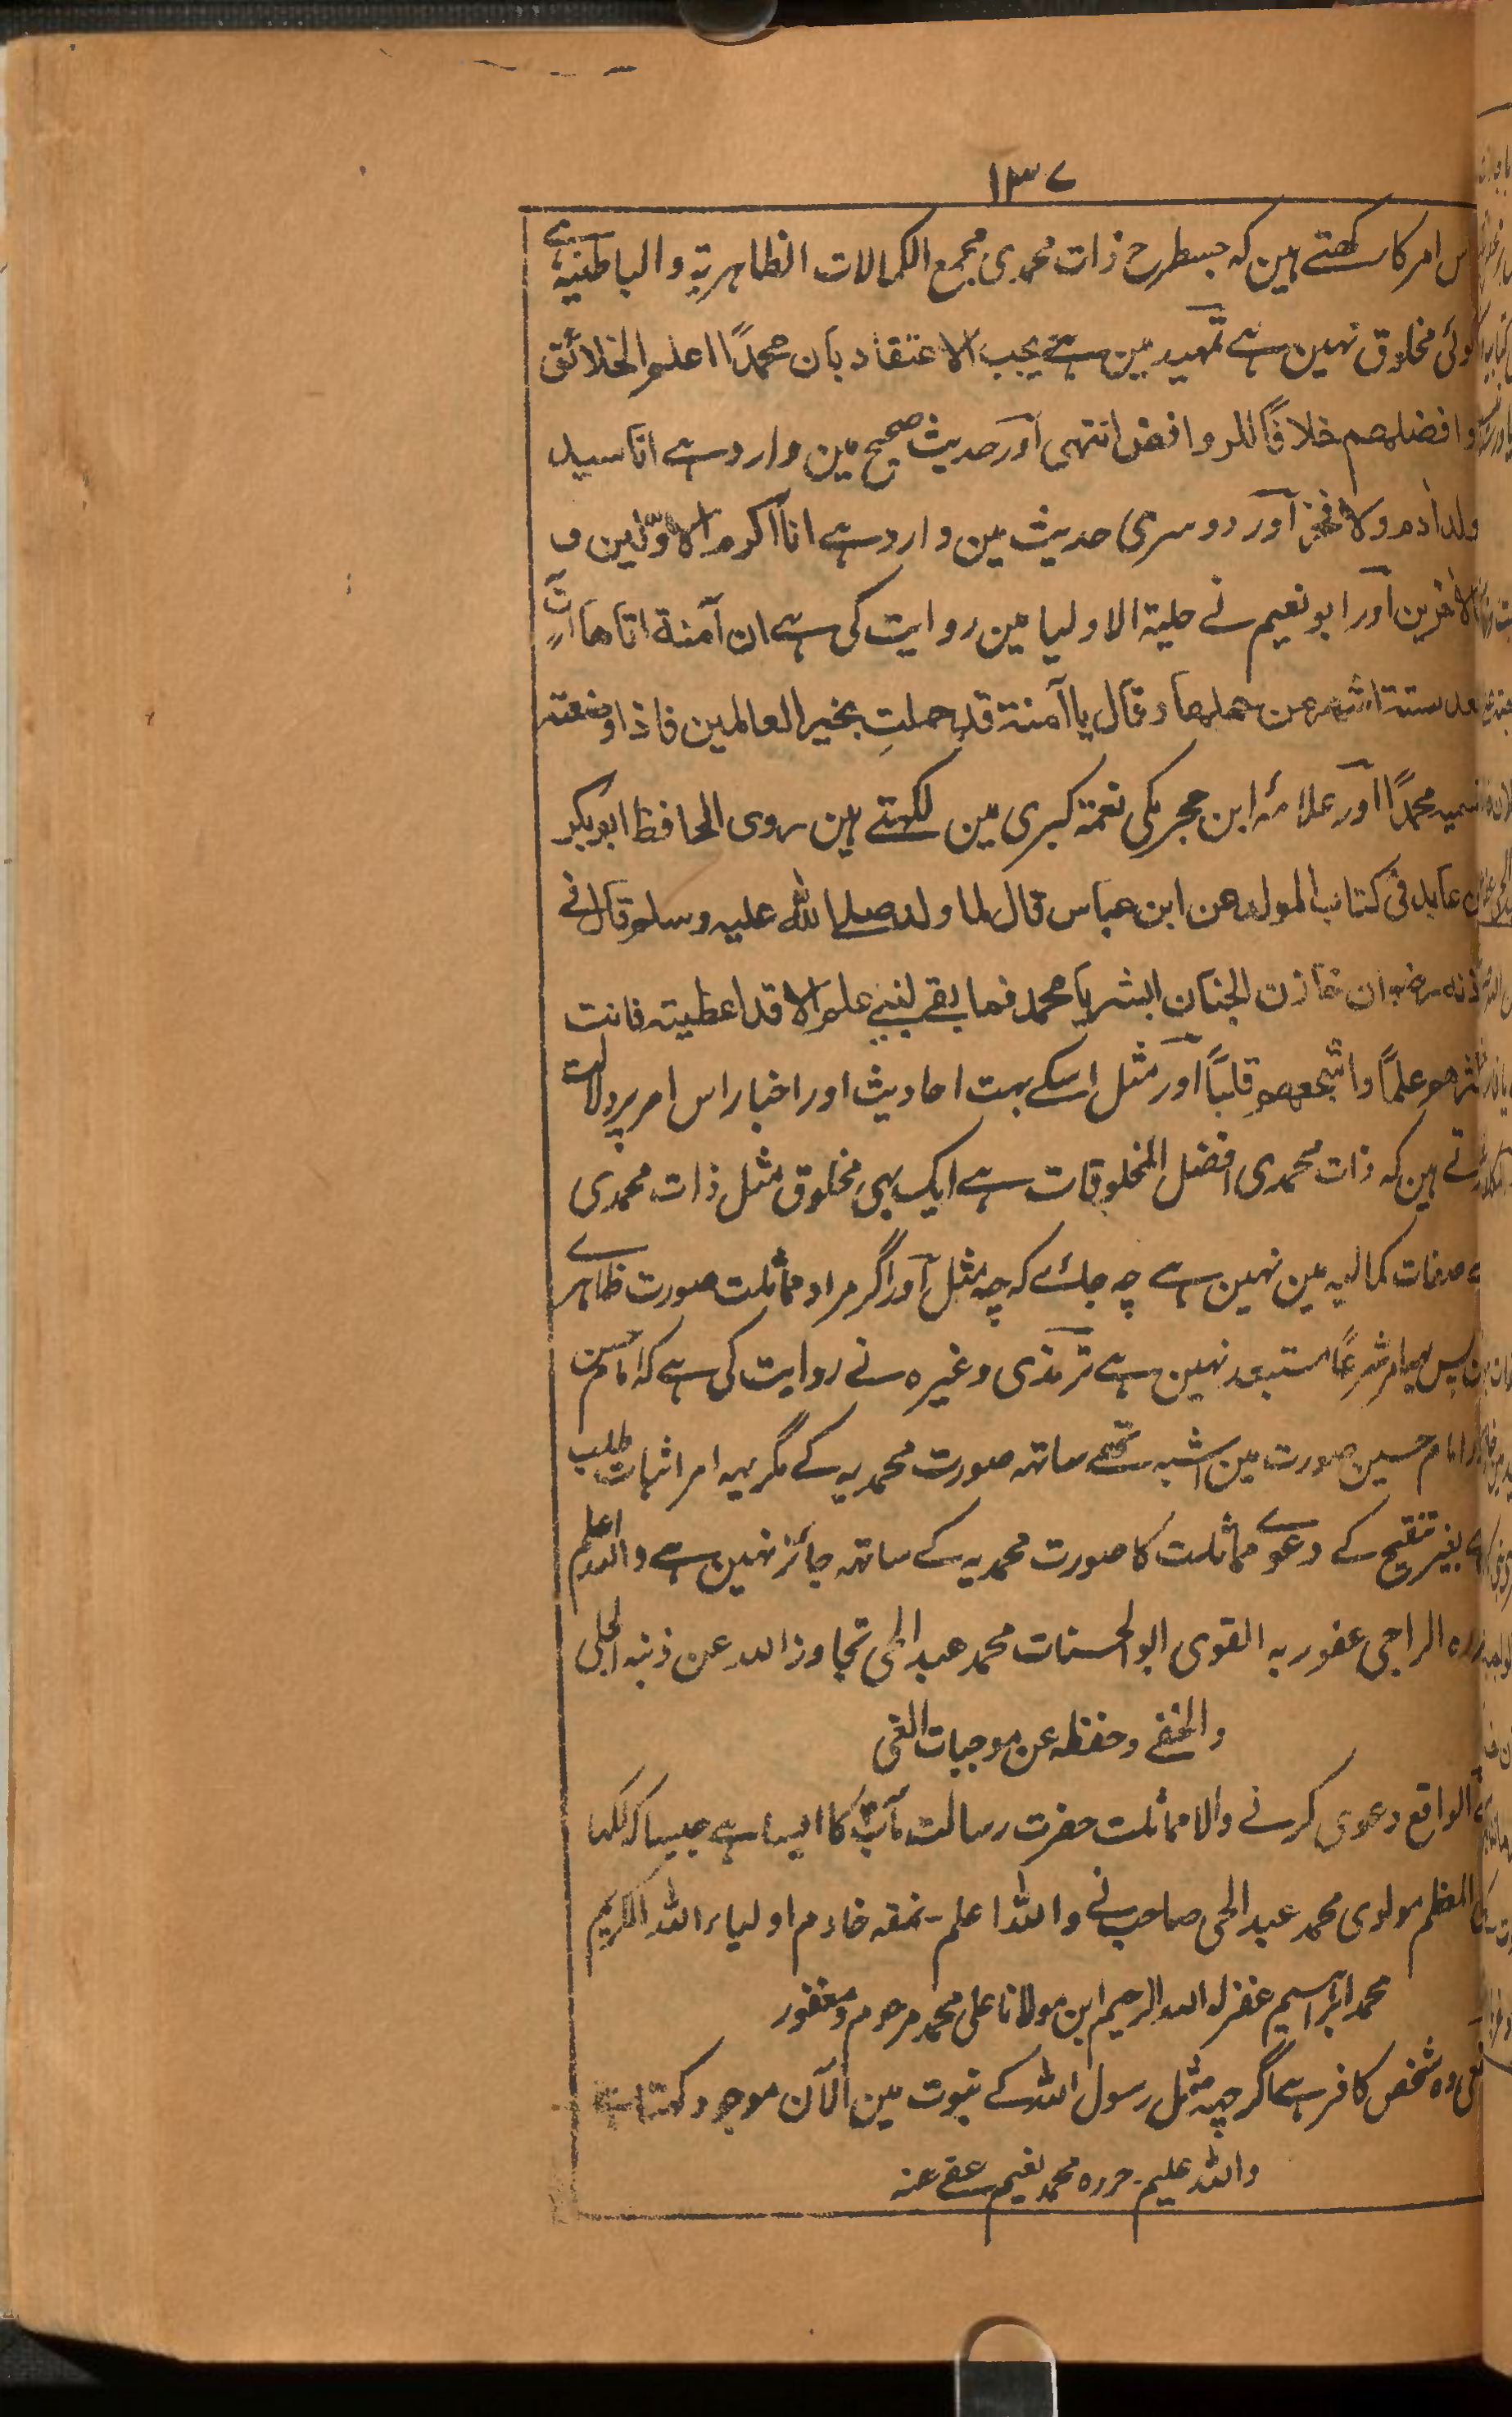 ۱۳۷
اس امر کا رکھتے ہین کہ جسطرح ذات محمدی مجمع الکمالات الظاہریۃ والباطنیۃ ہے
کوئی مخلوق نہین ہے تمہید مین ہے یجب الاعتقاد بان محمدًا اعلم الخلائق
وافضلھم خلافًا للروافض انتہی اور حدیث صحیح مین وارد ہے انا سید
ولد اٰدم ولا فخر اور دوسری حدیث مین وارد ہے انا اکرم الاوّلین و
الاخرین اور ابو نعیم نے حلیۃ الاولیا مین روایت کی ہے ان آمنۃ اتاھا اٰتٍ
بعد ستۃ اشھر من حملھا وقال یا آمنۃ قد حملتِ بخیر العالمین فاذا وضعتہ
فسمیہ محمدًا اور علامۂ ابن حجر مکی نعمۃ کبری مین لکہتے ہین روی الحافظ ابو بکر
بن عابد فی کتاب المولد عن ابن عباس قال لما ولد صلی اللہ علیہ وسلم قال فی
اذنہ رضوان خازن الجنان ابشر یا محمد فما بقی لنبی علم الا قد اعطیتہ فانت
اکثرھم علمًا واشجعھم قلبًا اور مثل اسکے بہت احادیث اور اخبار اس امر پر دلالت
کرتے ہین کہ ذات محمدی افضل المخلوقات ہے ایک بہی مخلوق مثل ذات محمدی
کے صفات کمالیہ مین نہین ہے چہ جائے کہ چہ مثل اور اگر مراد مماثلت صورت ظاہرے
پس یہ امر شرعًا مستبعد نہین ہے ترمذی وغیرہ نے روایت کی ہے کہ امام حسن
اور امام حسین صورت مین اشبہ تھے ساتہہ صورت محمدیہ کے مگر یہہ امر اثبات طلب
ہے بغیر تنقیح کے دعوے مماثلت کا صورت محمدیہ کے ساتہہ جائز نہین ہے واللہ اعلم
حررہ الراجی عفو ربہ القوی ابو الحسنات محمد عبد الحی تجاوز اللہ عن ذنبہ الجلی
والخفے وحفظہ عن موجبات الغی
فی الواقع دعوی کرنے والا مماثلت حضرت رسالت مآبؐ کا ایسا ہے جیسا کہ لکہا
المعظم مولوی محمد عبد الحی صاحب نے واللہ اعلم - نمقہ خادم اولیاء اللہ الکریم
محمد ابراہیم غفرلہ اللہ الرحیم ابن مولانا علی محمد مرحوم و مغفور
وہ شخص کافر ہے اگر چہ مثل رسول اللہ کے نبوت مین الآن موجود کہتا ہے
واللہ علیم - حررہ محمد نعیم عفے عنہ